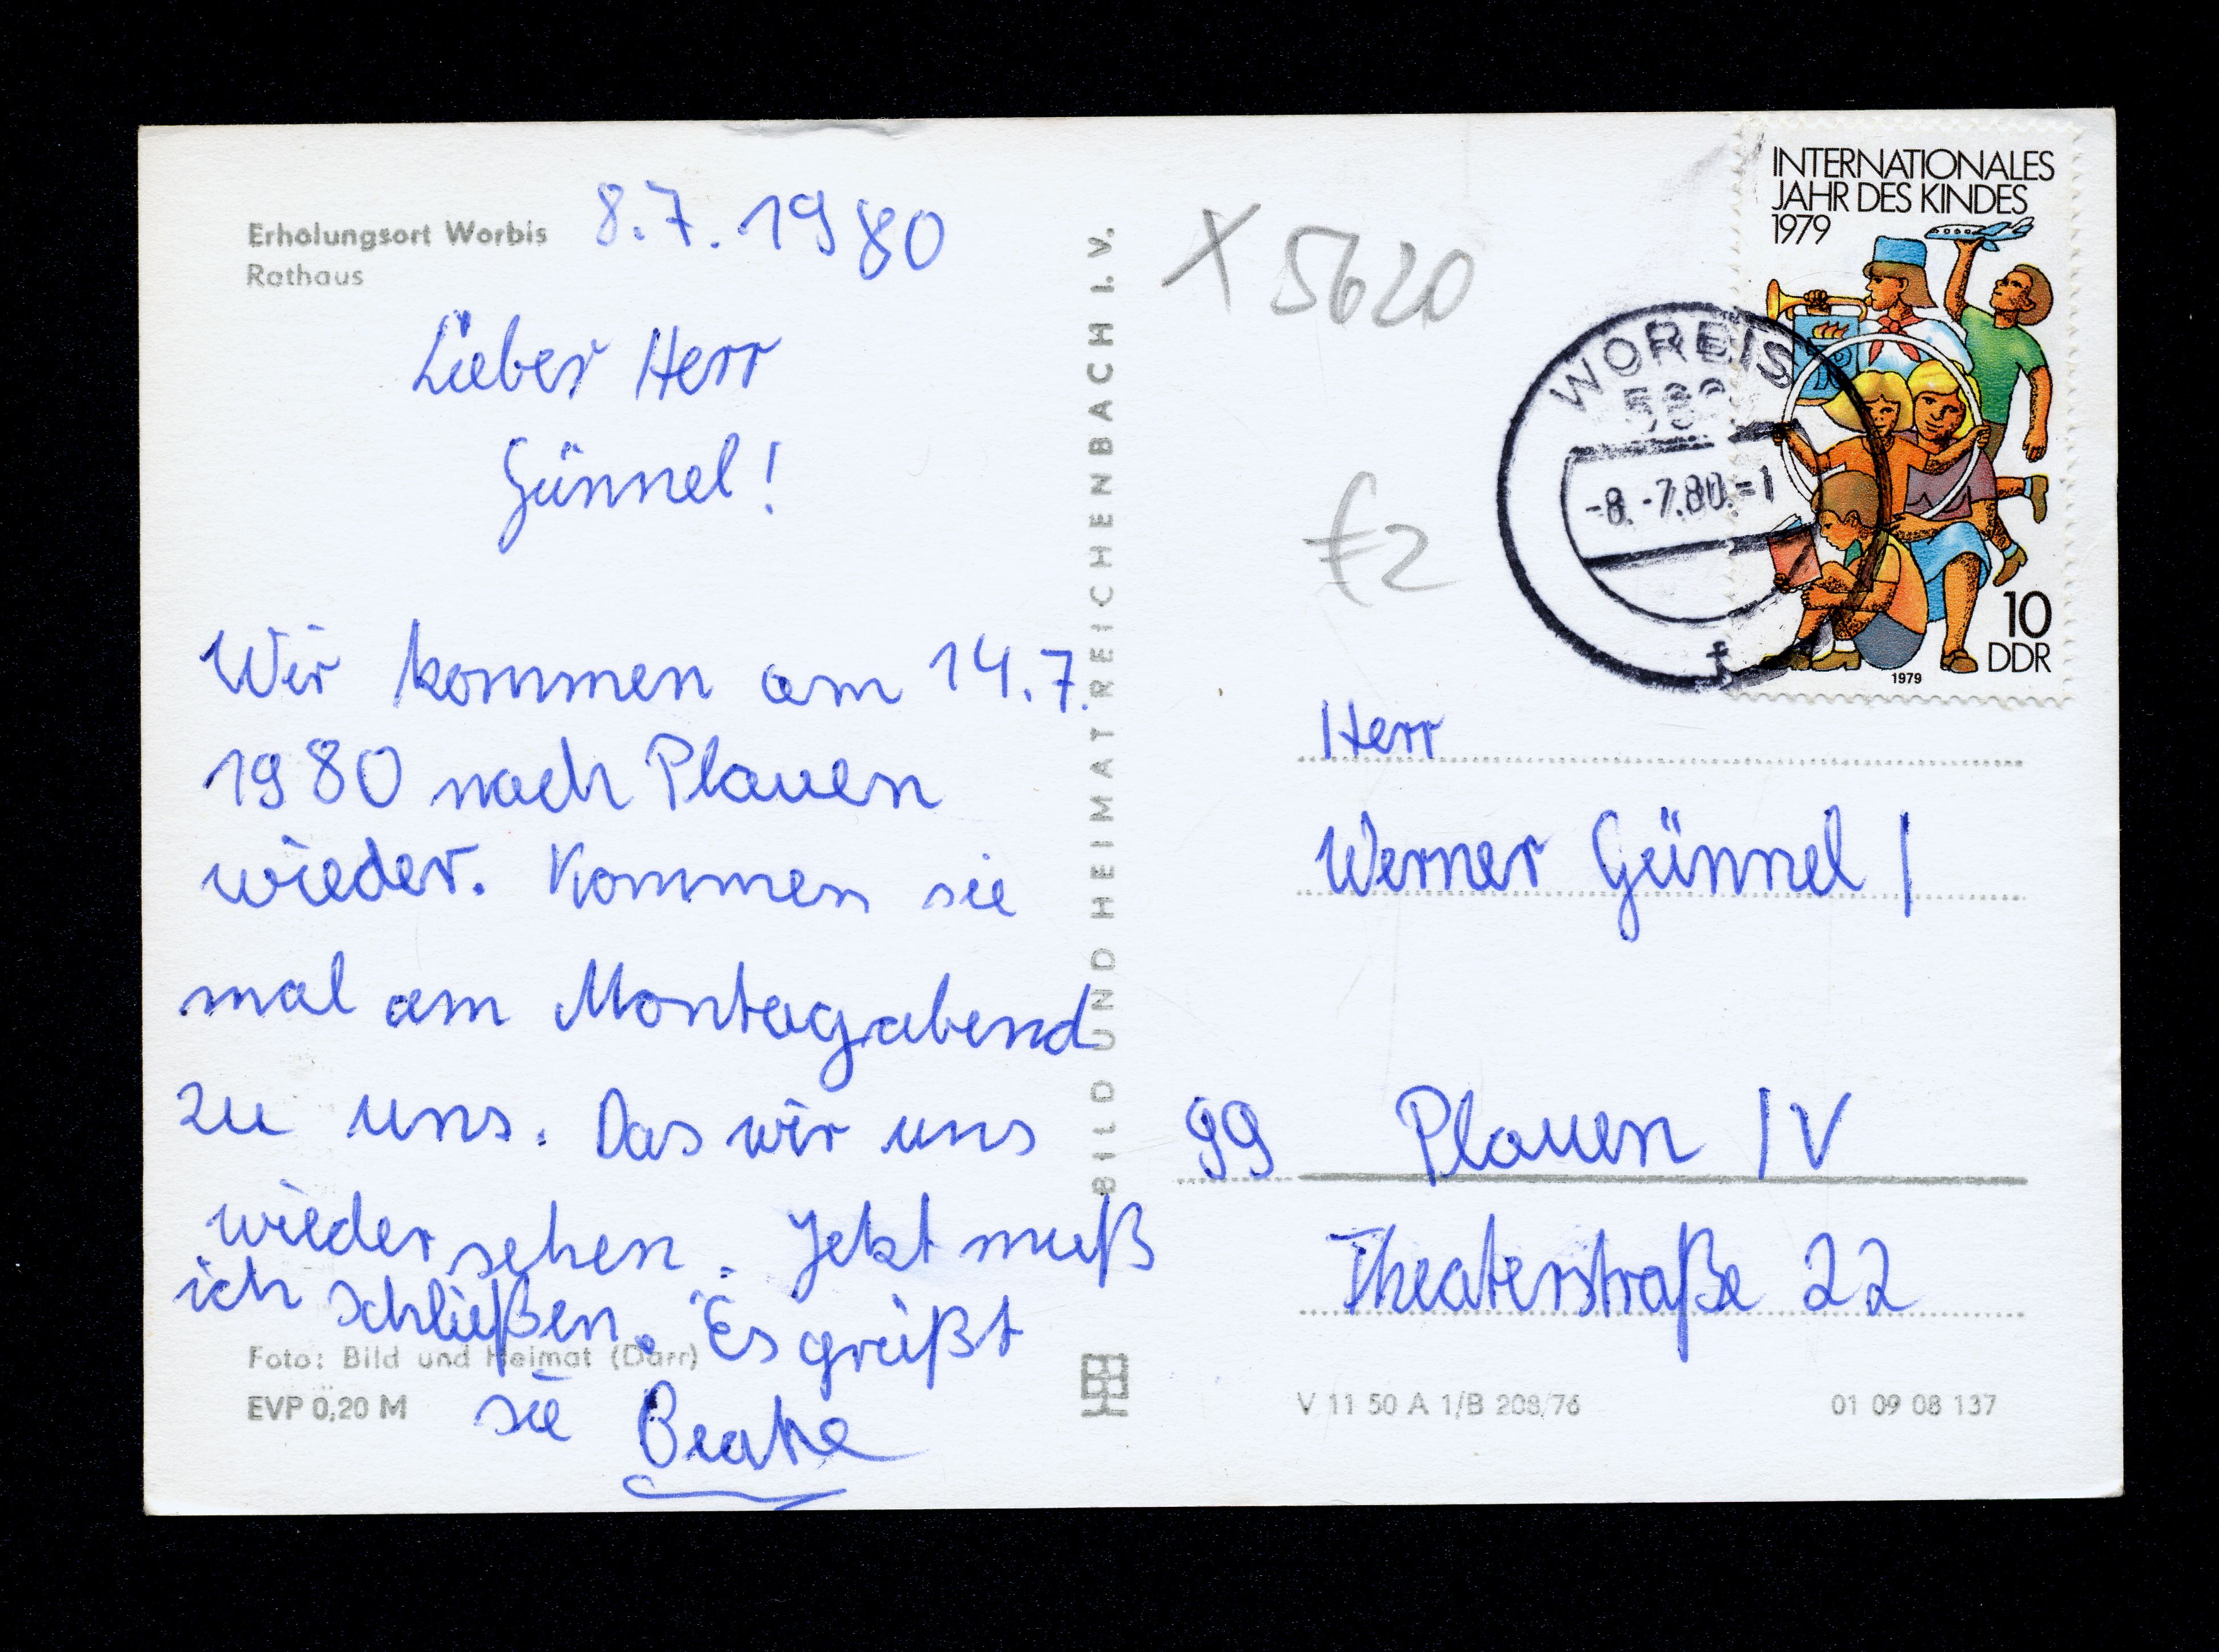 Erholungsort Worbis
Rathaus
8.7.1980
Lieber Herr
Günnel!
Wir kommen am 14.7.
1980 nach Plauen
wieder. Kommen sie
mal am Montagabend
zu uns. Das wir uns
wieder sehen. Jetzt muß
ich schließen. Es grüßt
sie Beate
Foto: Bild und Heimat (Darr)
EVP 0,20 M
BILD UND HEIMAT REICHENBACH I. V.
X 5620
£2
INTERNATIONALES
JAHR DES KINDES
1979
10
DDR
1979
WORBIS
-8.-7.80.-1
f
Herr
Werner Günnel
99 Plauen IV
Theaterstraße 22
V 11 50 A 1/B 208/76
01 09 08 137